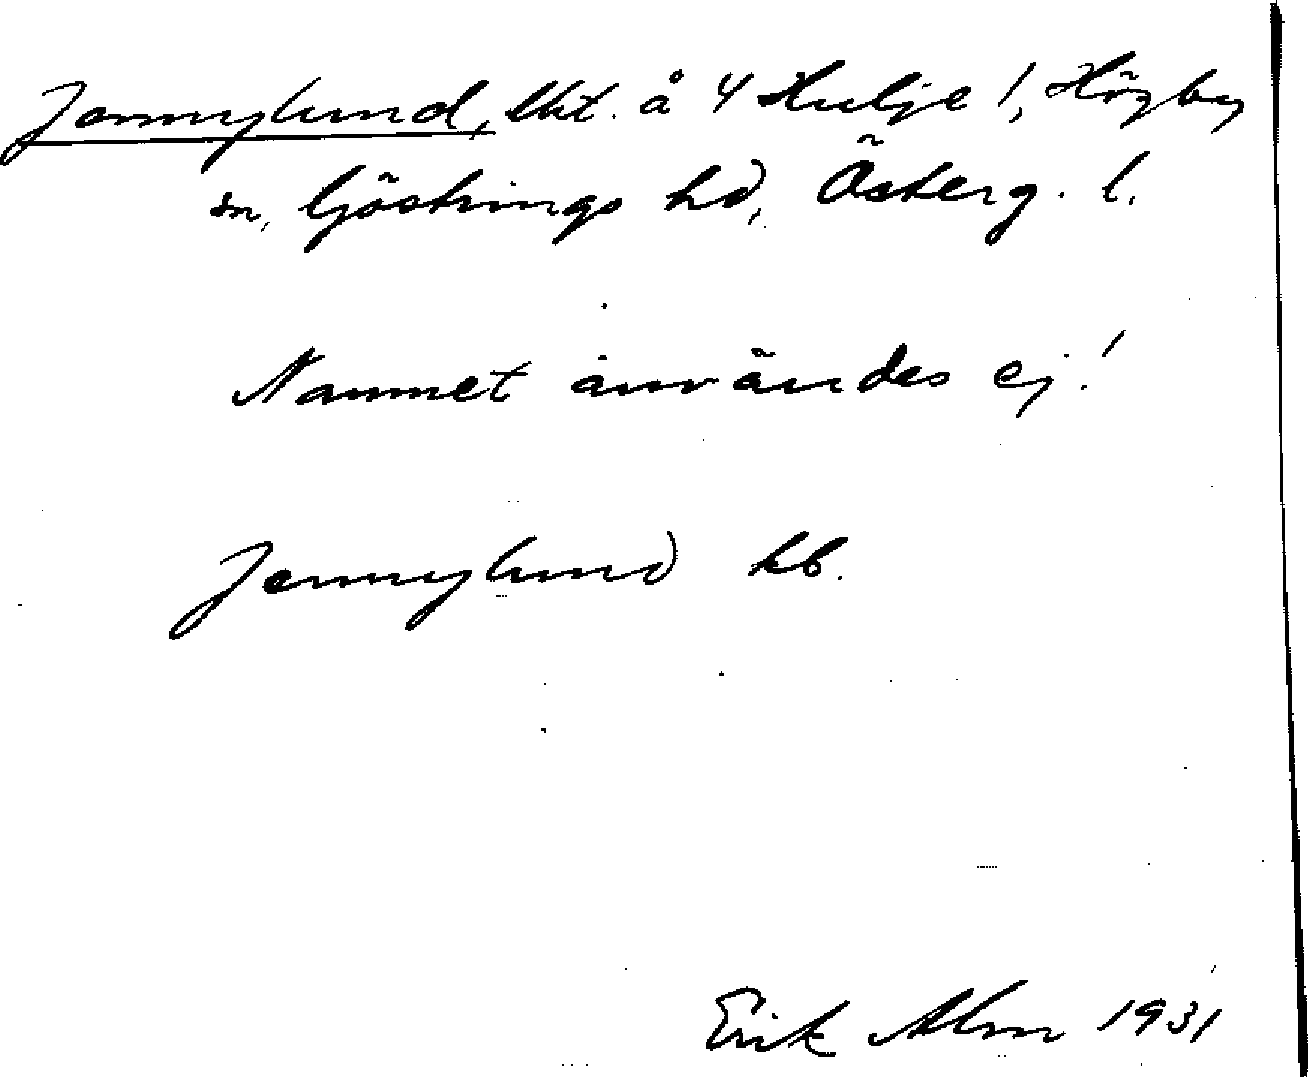 Jennylund, lht. å 4 Hulje 1, Högby
sn, Göstrings hd, Österg. l.
Namnet användes ej!
Jennylund kb.
Erik Alm 1931